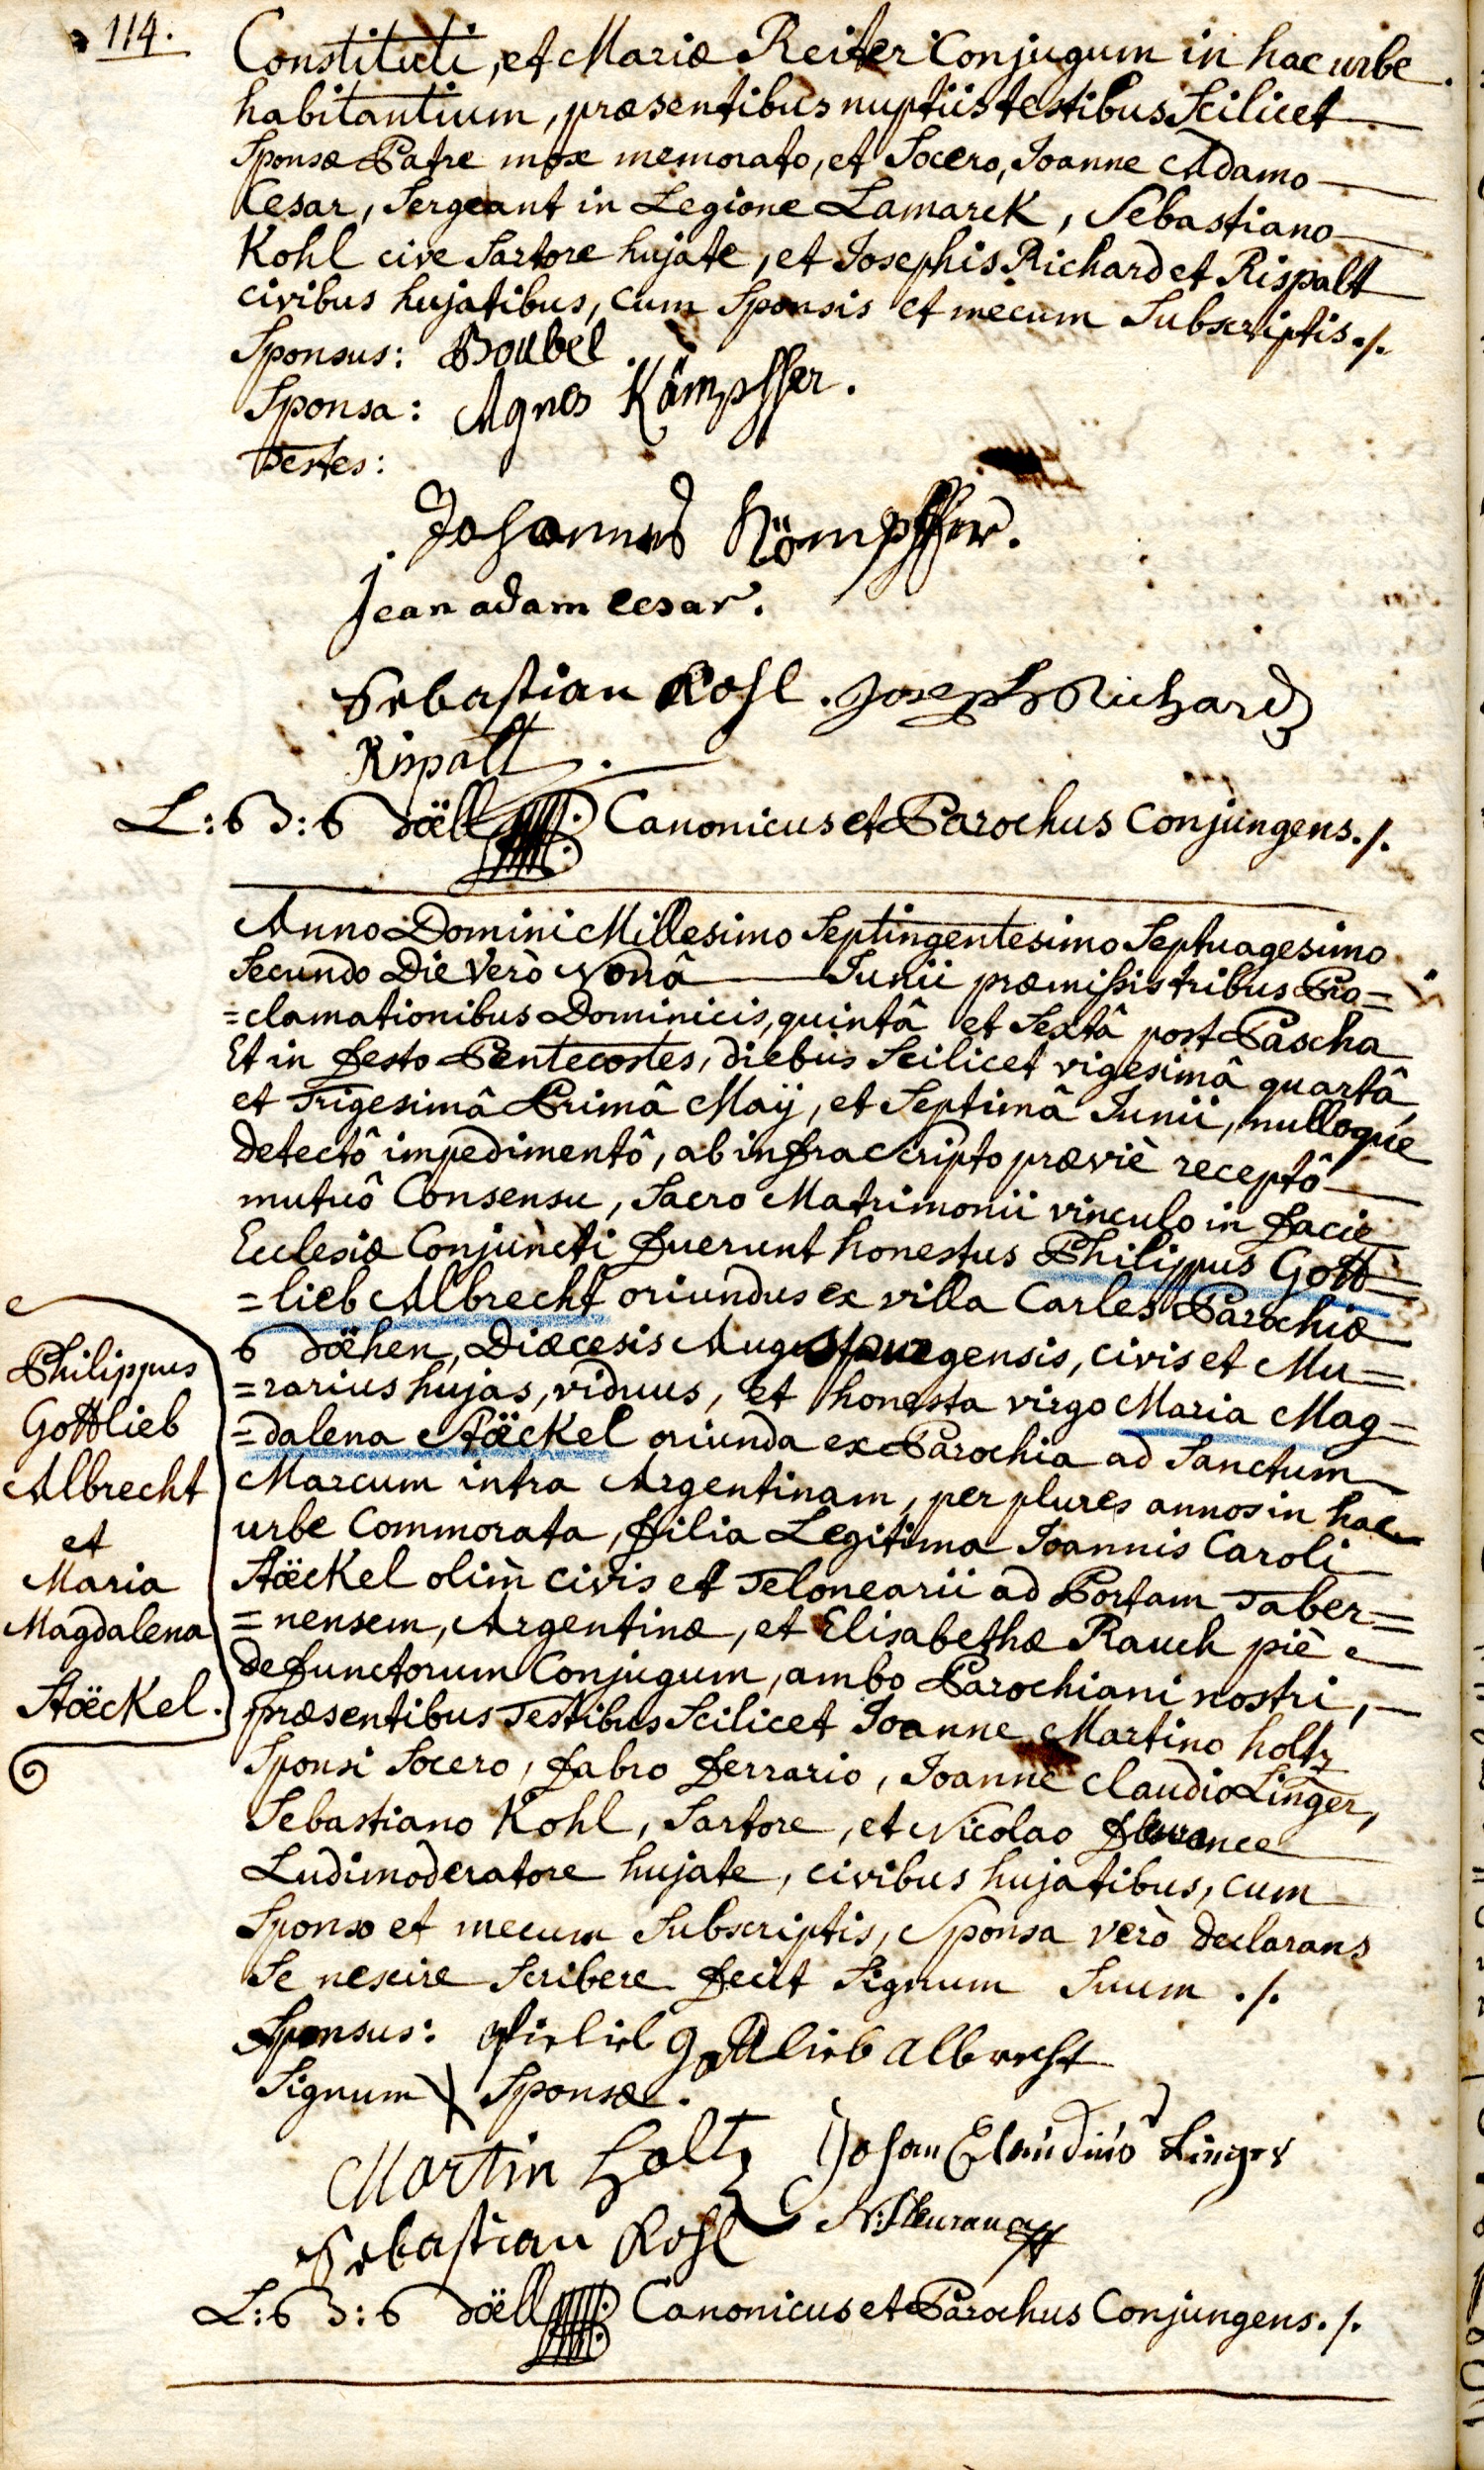 114.
Constituti, et Mariæ Reiter Conjugum in hac urbe
habitantium, præsentibus nuptiis testibus Scilicet
Sponsæ Patre mox memorato, et Socero, Joanne Adamo
Cesar, Sergeant in Legione Lamarck, Sebastiano
Kohl cive Sartore hujate, et Josephis Richard et Rispalt
civibus hujatibus, cum Sponsis et mecum Subscriptis ./.
Sponsus: Boubel
Sponsa: Agnes Kämpffer.
Testes:
Johannes Kämpffer.
jean adam cesar.
Sebastian Kohl. Joseph Richard
Rispalt.
Döll Canonicus et Parochus Conjungens ./.
Anno Domini Millesimo Septingentesimo Septuagesimo
Secundo Die Verò Nonâ Junii præmissis tribus Pro=
=clamationibus Dominicis, quintâ et Sextâ post Pascha
Et in festo Pentecostes, diebus Scilicet vigesimâ quartâ,
et Trigesimâ Primâ Maÿ, et Septimâ Junii, nulloque
detectô impedimentô, ab infra Scripto præviè receptô
mutuô Consensu, Sacro Matrimonii vinculo in facie
Ecclesiæ Conjuncti fuerunt honestus Philippus Gott=
=lieb Albrecht oriundus ex villa Carles Parochiæ
Döhen, Diæcesis Augustanegensis, civis et Mu=
=rarius hujas, viduus, et honesta virgo Maria Mag=
=dalena Stöckel oriunda ex Parochia ad Sanctum
Marcum intra Argentinam, per plures annos in hac
urbe Commorata, filia Legitima Joannis Caroli
Stöckel olim civis et Telonearii ad Portam Taber=
=nensem, Argentinæ, et Elisabethæ Rauch piè
defunctorum Conjugum, ambo Parochiani nostri,
præsentibus Testibus Scilicet Joanne Martino holtz
Sponsi Socero, fabro ferrario, Joanne Claudio Linger,
Sebastiano Kohl, Sartore, et Nicolao fleurance
Ludimoderatore hujate, civibus hujatibus, cum
Sponso et mecum Subscriptis, Sponsa verò declarans
Se nescire Scribere fecit Signum Suum ./.
Philippus
Gottlieb
Albrecht
et
Maria
Magdalena
Stöckel.
Sponsus: gottlieb albrecht
Signum Sponsæ.
Martin Holtz Johan Claudius Linger
Sebastian Kohl N: fleurance
Döll Canonicus et Parochus Conjungens ./.